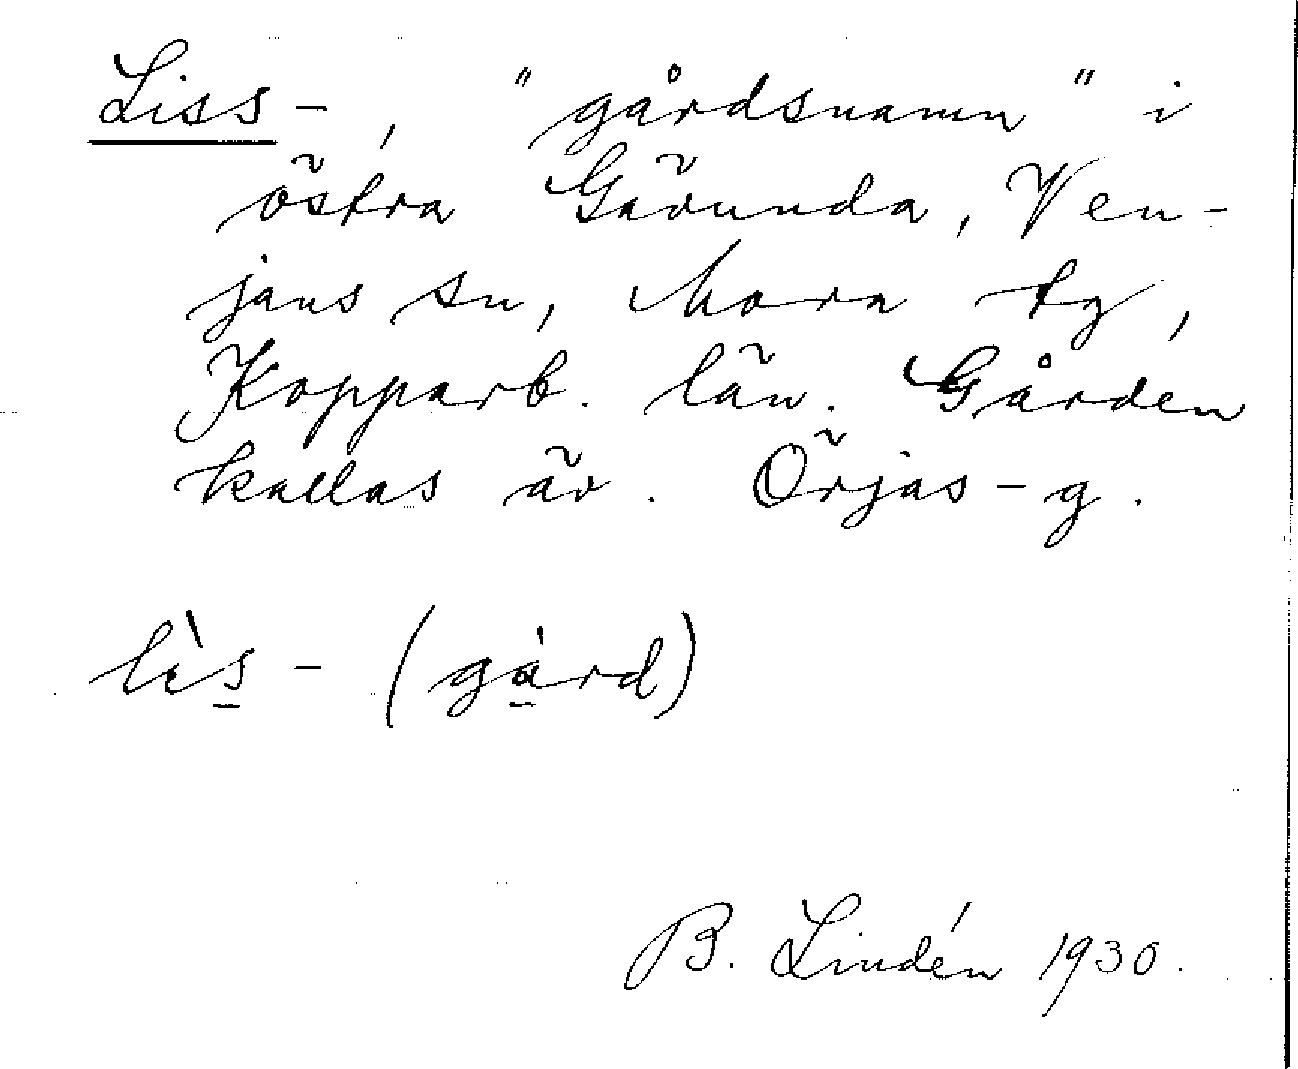 Liss-, "gårdsnamn" i
östra Gävunda, Ven-
jans sn, Mora tg,
Kopparb. län. Gården
kallas äv. Örjas-g.
lìs- (gård)
B. Lindén 1930.